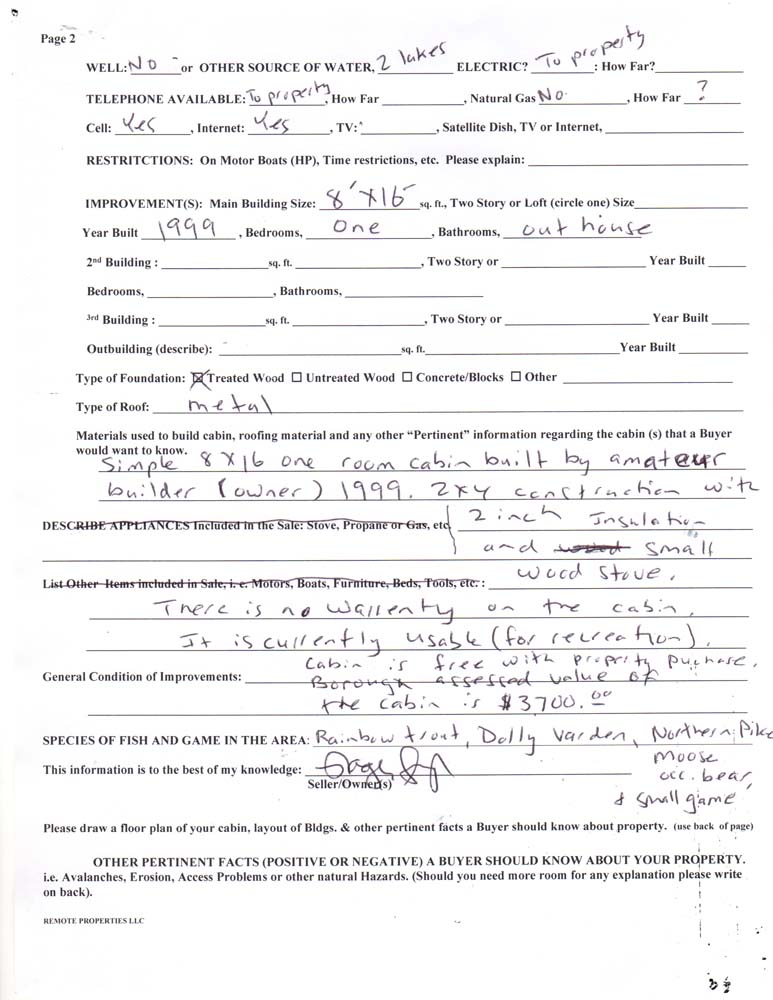 Page 2
WELL: NO or OTHER SOURCE OF WATER, 2 lakes ELECTRIC? To property : How Far?
TELEPHONE AVAILABLE: To property, How Far , Natural Gas No. , How Far ?
Cell: Yes , Internet: Yes , TV: , Satellite Dish, TV or Internet,
RESTRITCTIONS: On Motor Boats (HP), Time restrictions, etc. Please explain:
IMPROVEMENT(S): Main Building Size: 8' X 16 sq. ft., Two Story or Loft (circle one) Size
Year Built 1999 , Bedrooms, One , Bathrooms, out house
2nd Building : sq. ft. , Two Story or Year Built
Bedrooms, , Bathrooms,
3rd Building : sq. ft. , Two Story or Year Built
Outbuilding (describe): sq. ft. Year Built
Type of Foundation: ☒ Treated Wood ☐ Untreated Wood ☐ Concrete/Blocks ☐ Other
Type of Roof: metal
Materials used to build cabin, roofing material and any other “Pertinent” information regarding the cabin (s) that a Buyer
would want to know.
Simple 8 X 16 one room cabin built by amateur
builder (owner) 1999. 2x4 construction with
DESCRIBE APPLIANCES Included in the Sale: Stove, Propane or Gas, etc } 2 inch Insulation
and small
List Other Items included in Sale, i. e. Motors, Boats, Furniture, Beds, Tools, etc. : wood stove.
There is no warrenty on the cabin.
It is currently usable (for recreation).
Cabin is free with property puchase.
General Condition of Improvements: Borough assessed value of
the cabin is $3700.00
SPECIES OF FISH AND GAME IN THE AREA: Rainbow trout, Dolly Varden, Northern Pike
moose
This information is to the best of my knowledge:
occ. bear
Seller/Owner(s)
& small game
Please draw a floor plan of your cabin, layout of Bldgs. & other pertinent facts a Buyer should know about property. (use back of page)
OTHER PERTINENT FACTS (POSITIVE OR NEGATIVE) A BUYER SHOULD KNOW ABOUT YOUR PROPERTY.
i.e. Avalanches, Erosion, Access Problems or other natural Hazards. (Should you need more room for any explanation please write
on back).
REMOTE PROPERTIES LLC